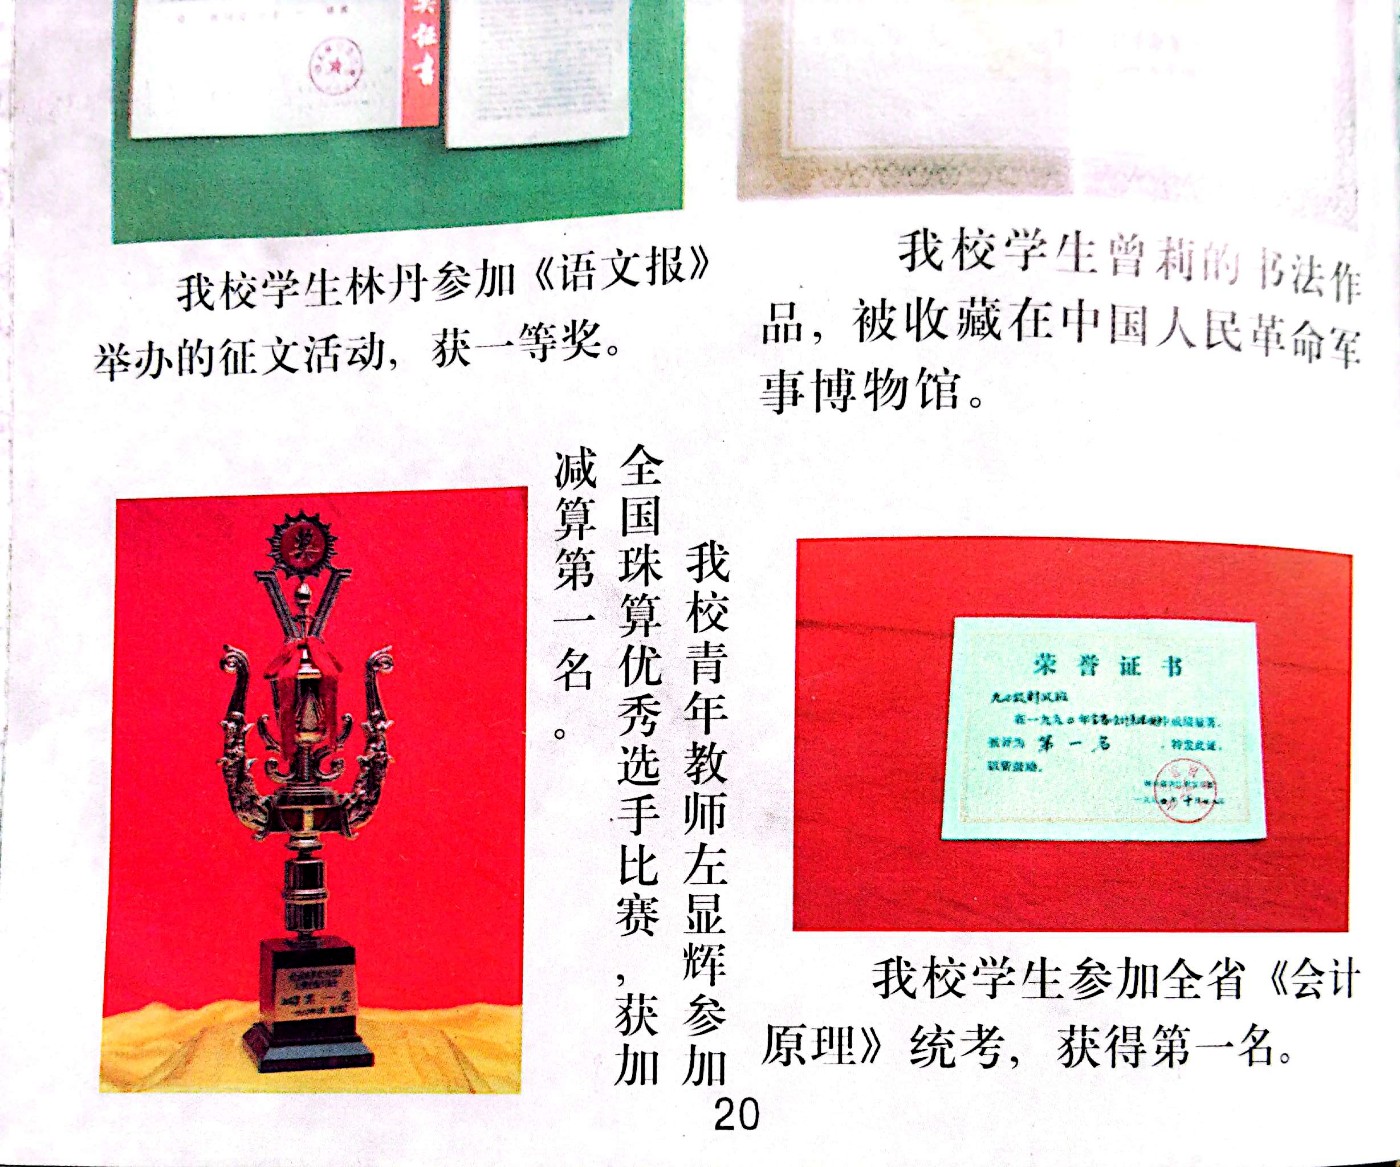 奖证书
我校学生林丹参加《语文报》
举办的征文活动，获一等奖。
我校学生曾莉的书法作
品，被收藏在中国人民革命军
事博物馆。
奖
我校青年教师左显辉参加
全国珠算优秀选手比赛，获加
减算第一名。
荣誉证书
第一名
特发此证，
以资鼓励。
我校学生参加全省《会计
原理》统考，获得第一名。
20